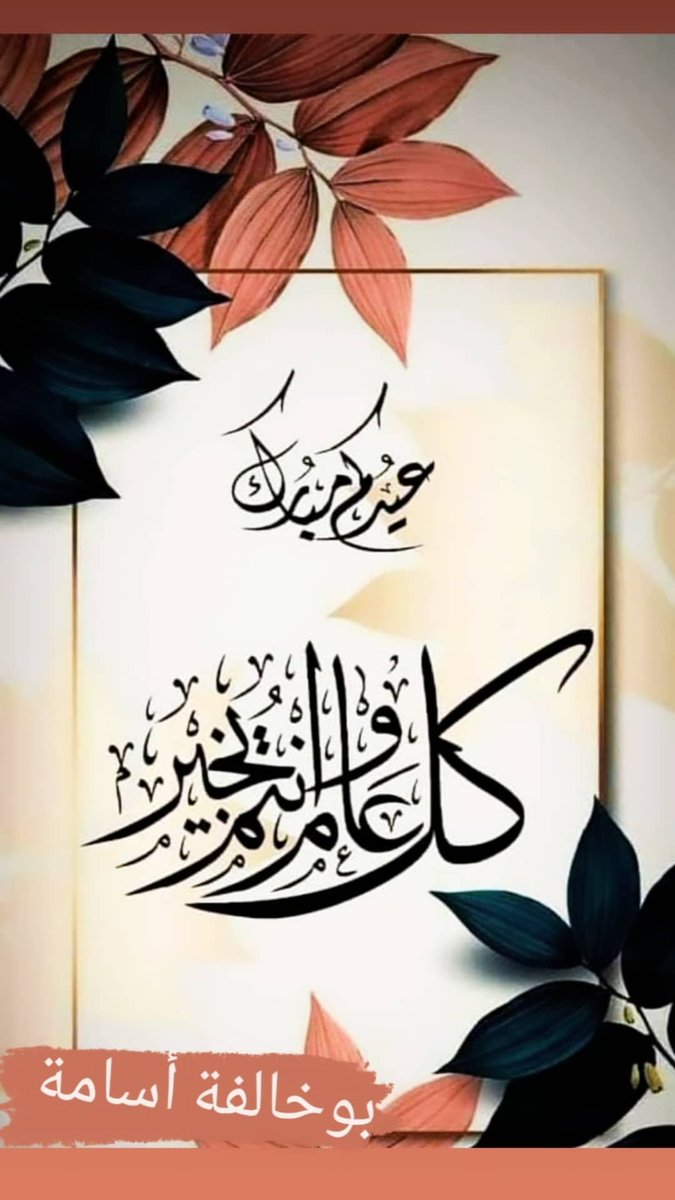 عيدكم مبارك
كل عام وانتم بخير
بوخالفة أسامة